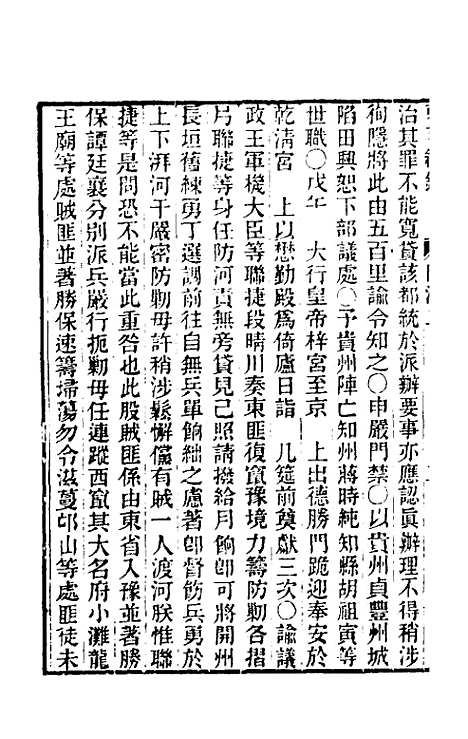 治其罪不能寬貸該都統於派辦要事亦應認眞辦理不得稍涉
徇隱將此由五百里諭令知之〇申嚴門禁〇以貴州貞豐州城
陷田興恕下部議處〇予貴州陣亡知州蔣時純知縣胡祖寅等
世職〇戊午　大行皇帝梓宮至京　上出德勝門跪迎奉安於
乾清宮　上以懋勤殿爲倚廬日詣　几筵前奠獻三次〇諭議
政王軍機大臣等聯捷段晴川奏東匪復竄豫境力籌防勦各摺
片聯捷等身任防河責無旁貸見己照請撥給月餉卽可將開州
長垣舊練勇丁選調前往自無兵單餉絀之慮著卽督飭兵勇於
上下湃河干嚴密防勦毋許稍涉鬆懈儻有賊一人渡河朕惟聯
捷等是問恐不能當此重咎也此股賊匪係由東省入豫並著勝
保譚廷襄分别派兵嚴行扼勦毋任連蹤西竄其大名府小灘龍
王廟等處賊匪並著勝保速籌掃蕩勿令滋蔓邙山等處匪徒未